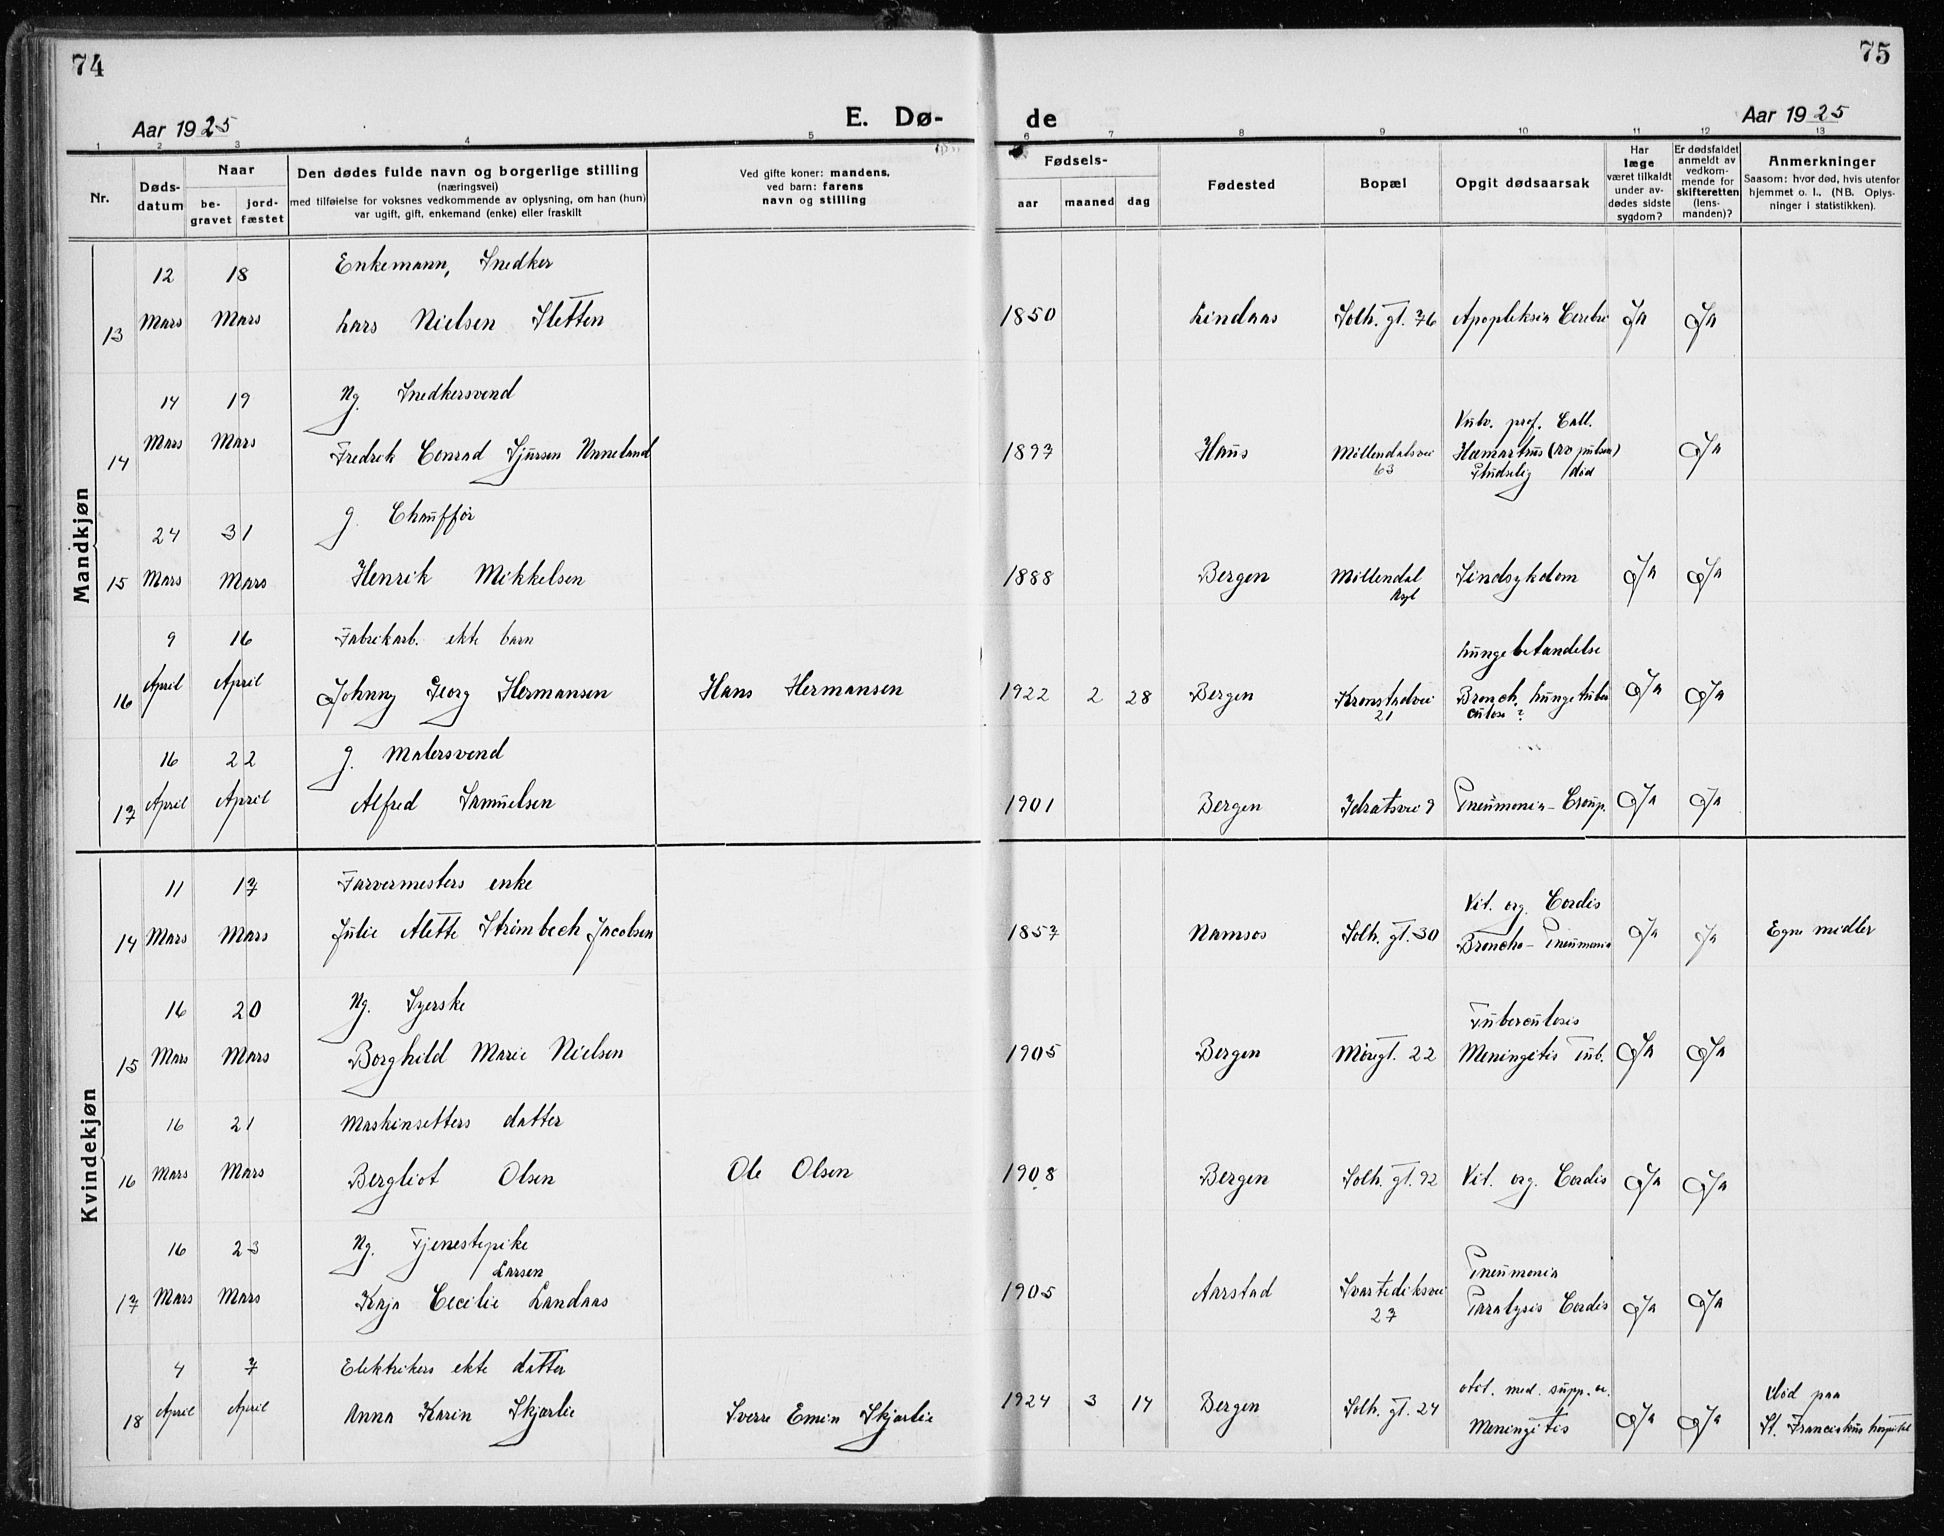 74
75
Aar 1925
E. Dø-
de
Aar 1925
1 2 3 4 5 6 7 8 9 10 11 12 13
Nr.
Døds-
datum
Naar
be-
gravet
jord-
fæstet
Den dødes fulde navn og borgerlige stilling
(næringsvei)
med tilføielse for voksnes vedkommende av oplysning, om han (hun)
var ugift, gift, enkemand (enke) eller fraskilt
Ved gifte koner: mandens,
ved barn: farens
navn og stilling
Fødsels-
aar
maaned
dag
Fødested
Bopæl
Opgit dødsaarsak
Har
læge
været tilkaldt
under av-
dødes sidste
sygdom?
Er dødsfaldet
anmeldt av
vedkom-
mende for
skifteretten
(lens-
manden)?
Anmerkninger
Saasom: hvor død, hvis utenfor
hjemmet o. l., (NB. Oplys-
ninger i statistikken).
Mandkjøn
12 18 Enkemann, Snedker
13 Mars Mars Lars Nielsen Sletten 1850 Lindaas Solh. gt. 76 Apopleksia Cerebri Ja Ja
14 19 Ug. Snedkersvend
14 Mars Mars Fredrik Conrad Sjursen Unneland 1897 Haus Møllendalsvei
63
Vulv. prof. Call.
Hæmartrus
Pludselig død
Ja
24 31 g. Chauffør
15 Mars Mars Henrik Mikkelsen 1888 Bergen Møllendal
Asyl
Sindsykdom Ja Ja
9 16 Fabrikarb. ekte barn
16 April April Johnny Georg Hermansen Hans Hermansen 1922 2 28 Bergen Kronstadvei
21
Lungebetandelse
Bronch. Lungetuber
culose?
Ja Ja
16 22 g. Malersvend
17 April April Alfred Samuelsen 1901 Bergen Idrætsvei 9 Pneumonia - Croup. Ja Ja
Kvindekjøn
11 17 Farvermesters enke
14 Mars Mars Julie Alette Strømbech Jacobsen 1857 Namsos Solh. gt. 30 Vit. org. Cordis
Broncho - Pneumonia
Ja Ja Egne midler
16 20 Ug. Syerske
15 Mars Mars Borghild Marie Nielsen 1905 Bergen Møregt. 22 Tuberculosis
Meningitis Tub.
Ja Ja
16 21 Maskinsetters datter
16 Mars Mars Bergliot Olsen Ole Olsen 1908 Bergen Solh. gt. 92 Vit. org. Cordis Ja Ja
16 23 Ug. Tjenestepike
Larsen
17 Mars Mars Kaja Cecilie Landaas 1905 Aarstad Svartediksvei
27
Pneumonia
Paralysis Cordis
Ja Ja
4 7 Elektrikers ekte datter
18 April April Anna Karin Skjærlie Sverre Emin Skjærlie 1924 3 14 Bergen Solh. gt. 24 otit. med. supp. a.
Meningitis
Ja Ja
død paa
St. Franciskus hospital